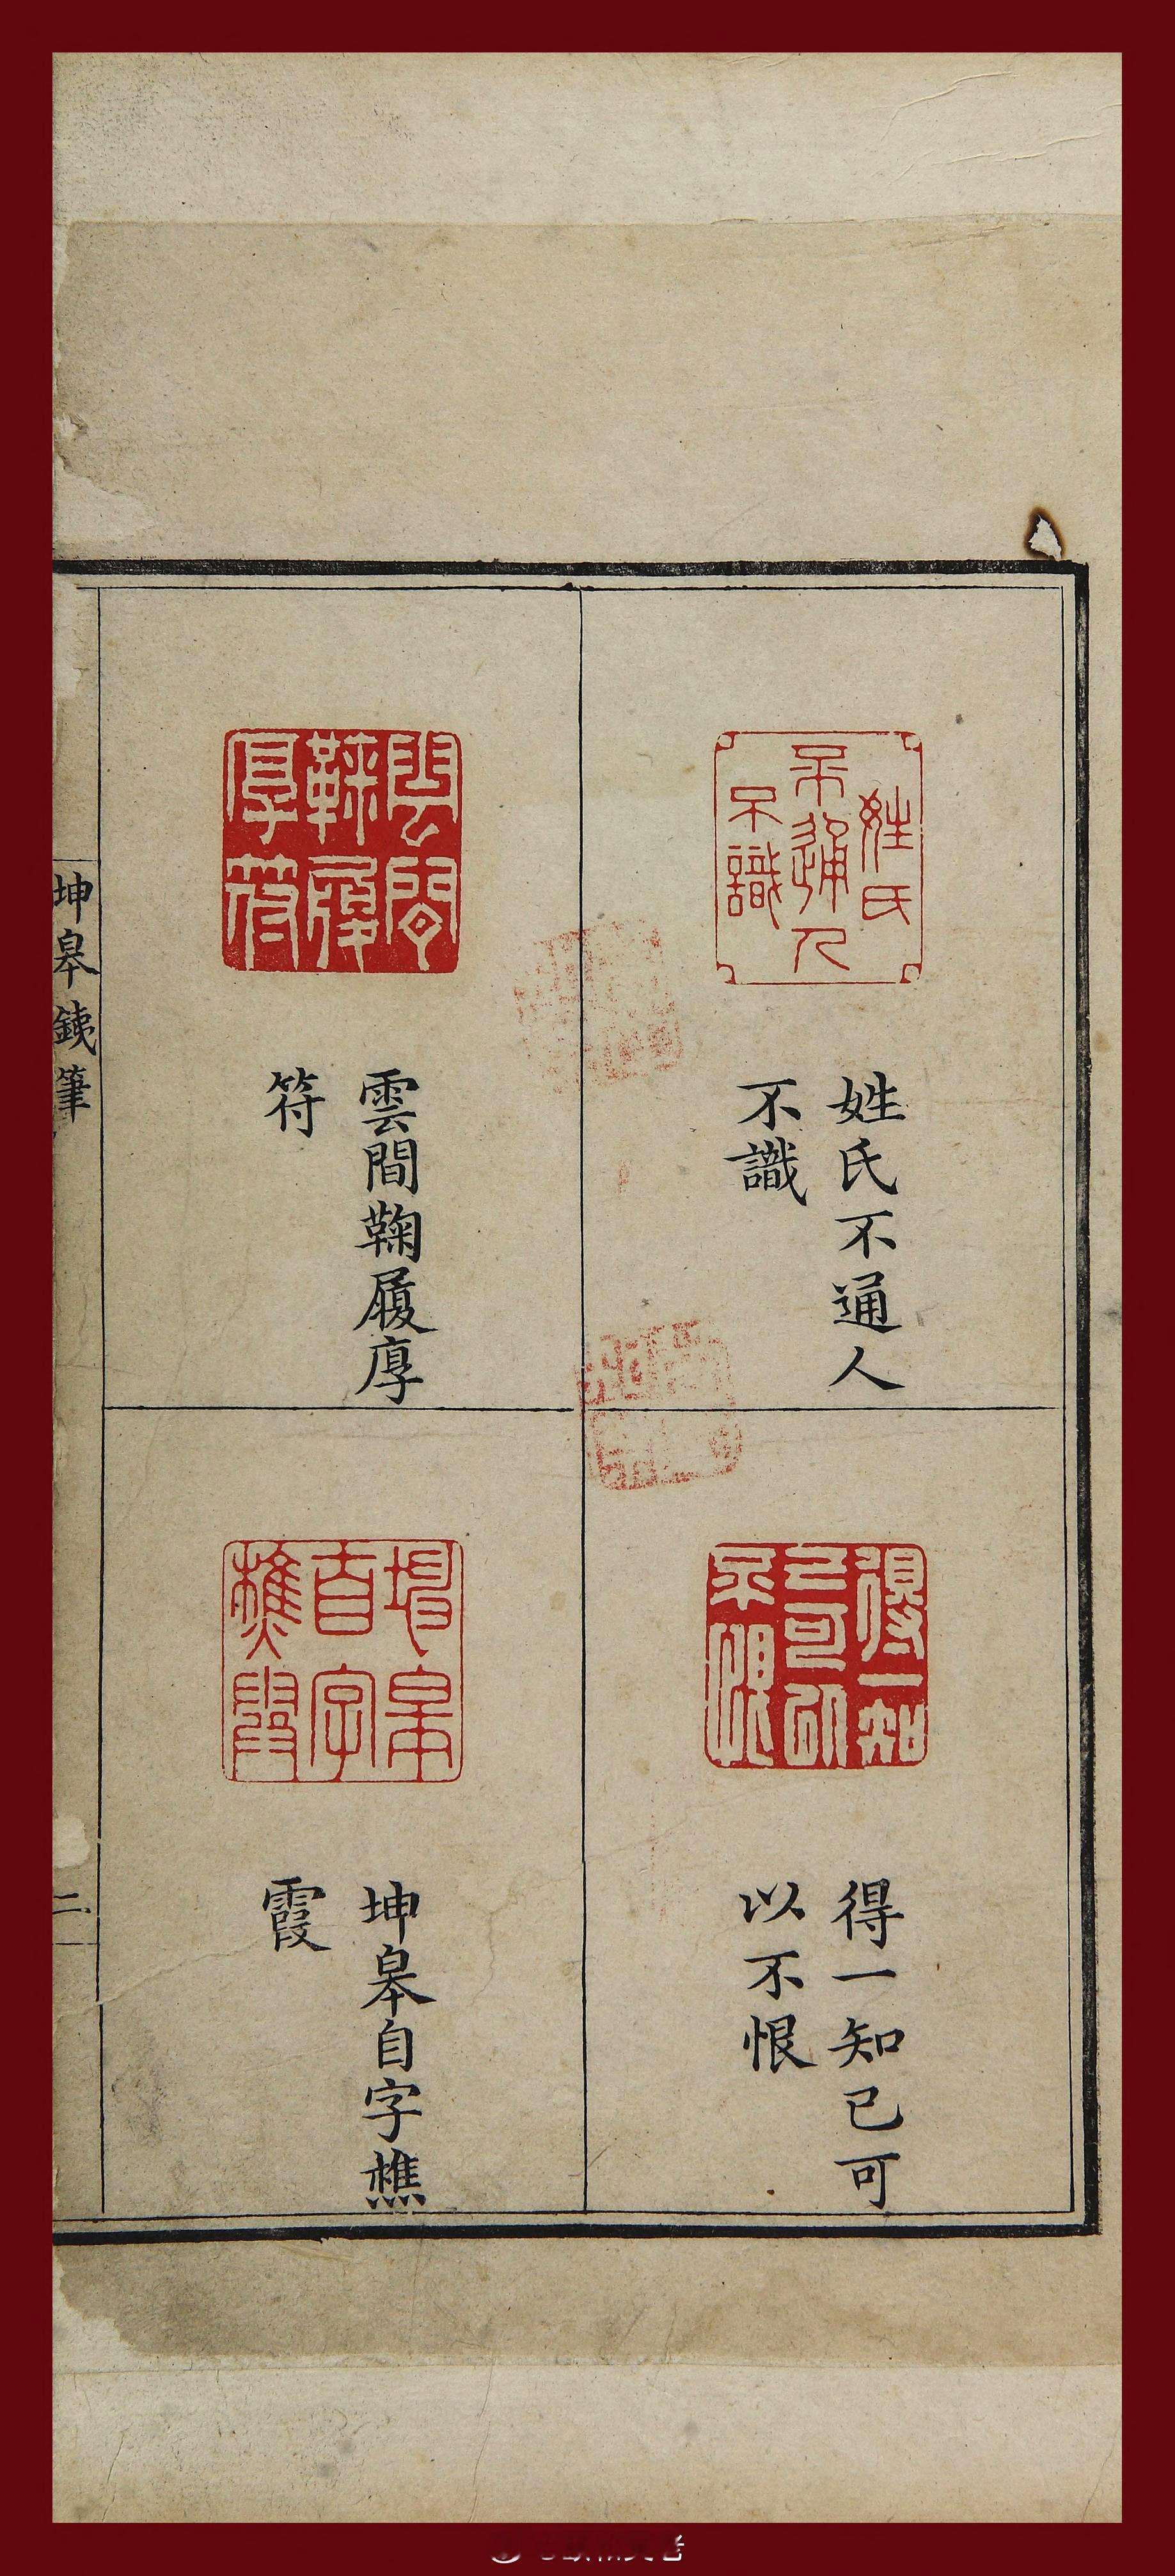 姓氏不通人不識
姓氏不通人
不識
得一知已可以不恨
得一知已可
以不恨
雲間鞠履厚符
雲間鞠履厚
符
坤皋自字樵霞
坤皋自字樵
霞
坤皋銕筆
二